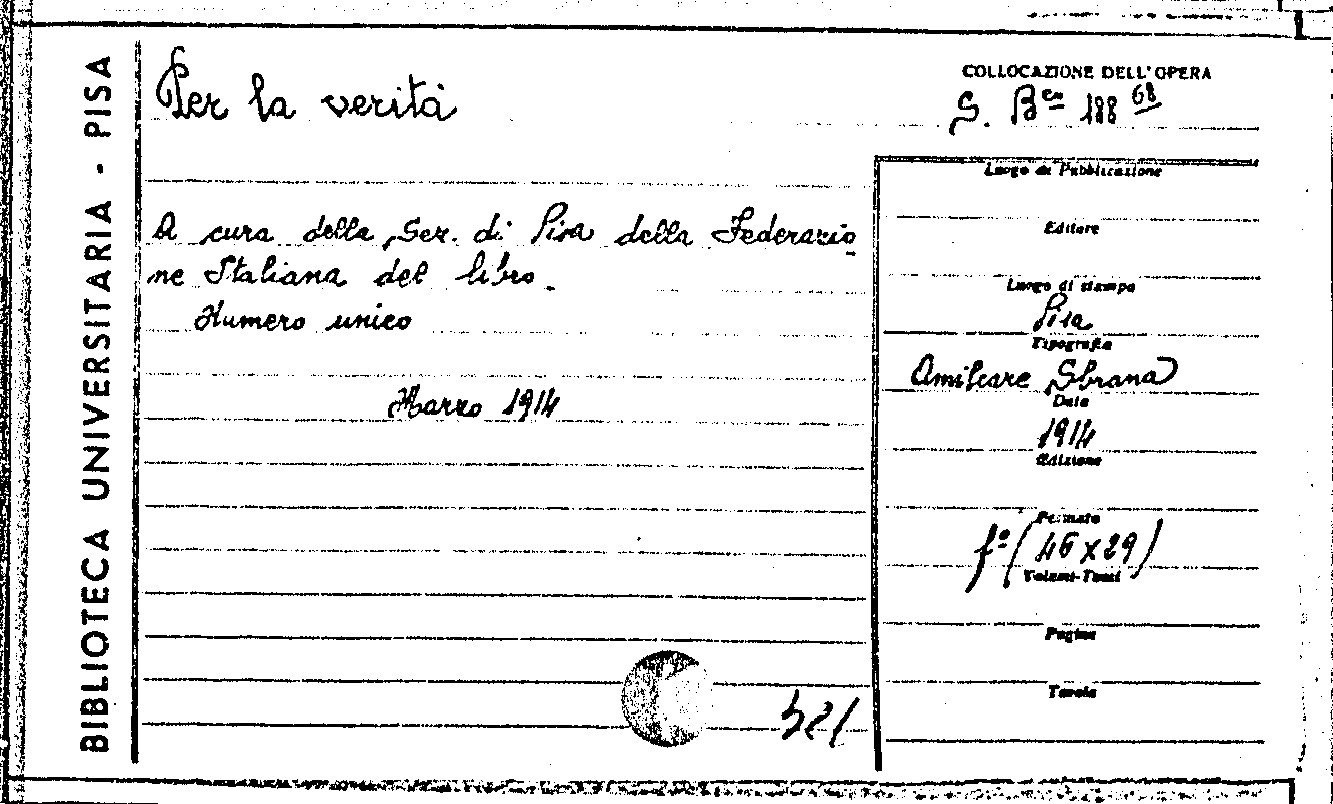 BIBLIOTECA UNIVERSITARIA - PISA
Per la verità
COLLOCAZIONE DELL'OPERA
S. Bca 188 68
A cura della Sez. di Pisa della Federazio
ne Italiana del libro.
Numero unico
Marzo 1914
Luogo di Pubblicazione
Editore
Luogo di stampa
Pisa
Tipografia
Amilcare Sbrana
Data
1914
Edizione
Formato
fº (46 x 29)
Volumi-Tomi
Pagine
Tavole